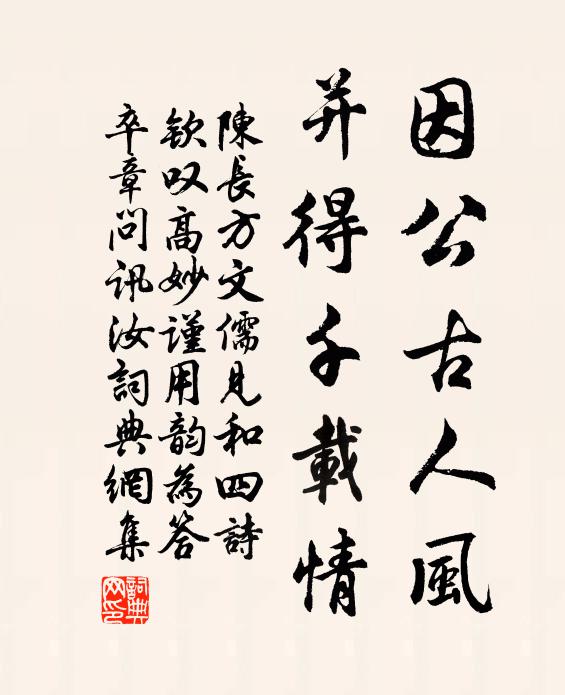 因公古人風
并得千載情
陳長方文儒見和四詩
欽叹高妙謹用韵為答
卒章問訊汝詞典網集
詞典
网印